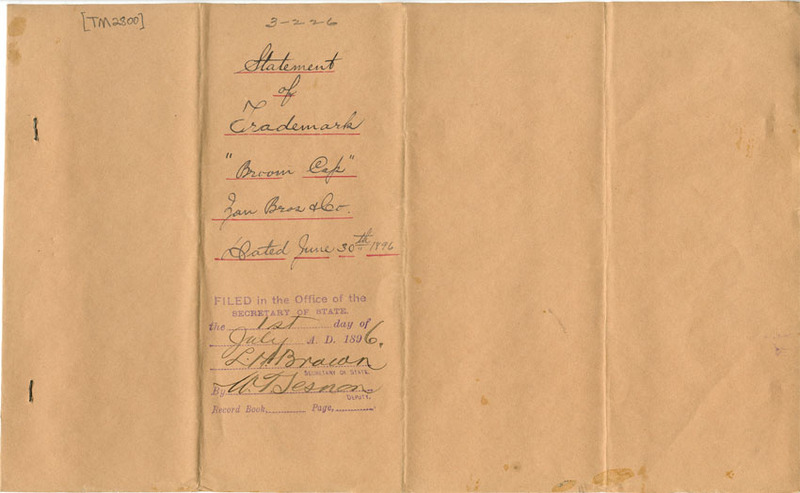 [TM2300]
3-226
Statement
of
Trademark
"Broom Cap"
Zan Bros & Co.
Dated June 30th 1896
FILED in the Office of the
SECRETARY OF STATE.
the 1st day of
July A. D. 1896.
L. H. Brown
SECRETARY OF STATE.
By W. T. Sesnon
DEPUTY.
Record Book, Page,